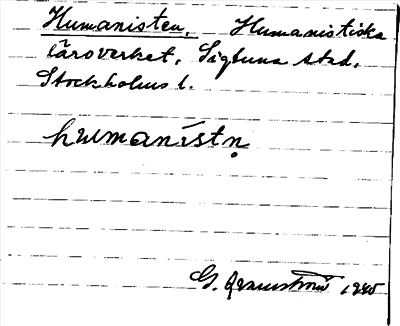 Humanisten. Humanistiska
läroverket, Sigtuna stad,
Stockholms l.
humanistṇ
G. 1940